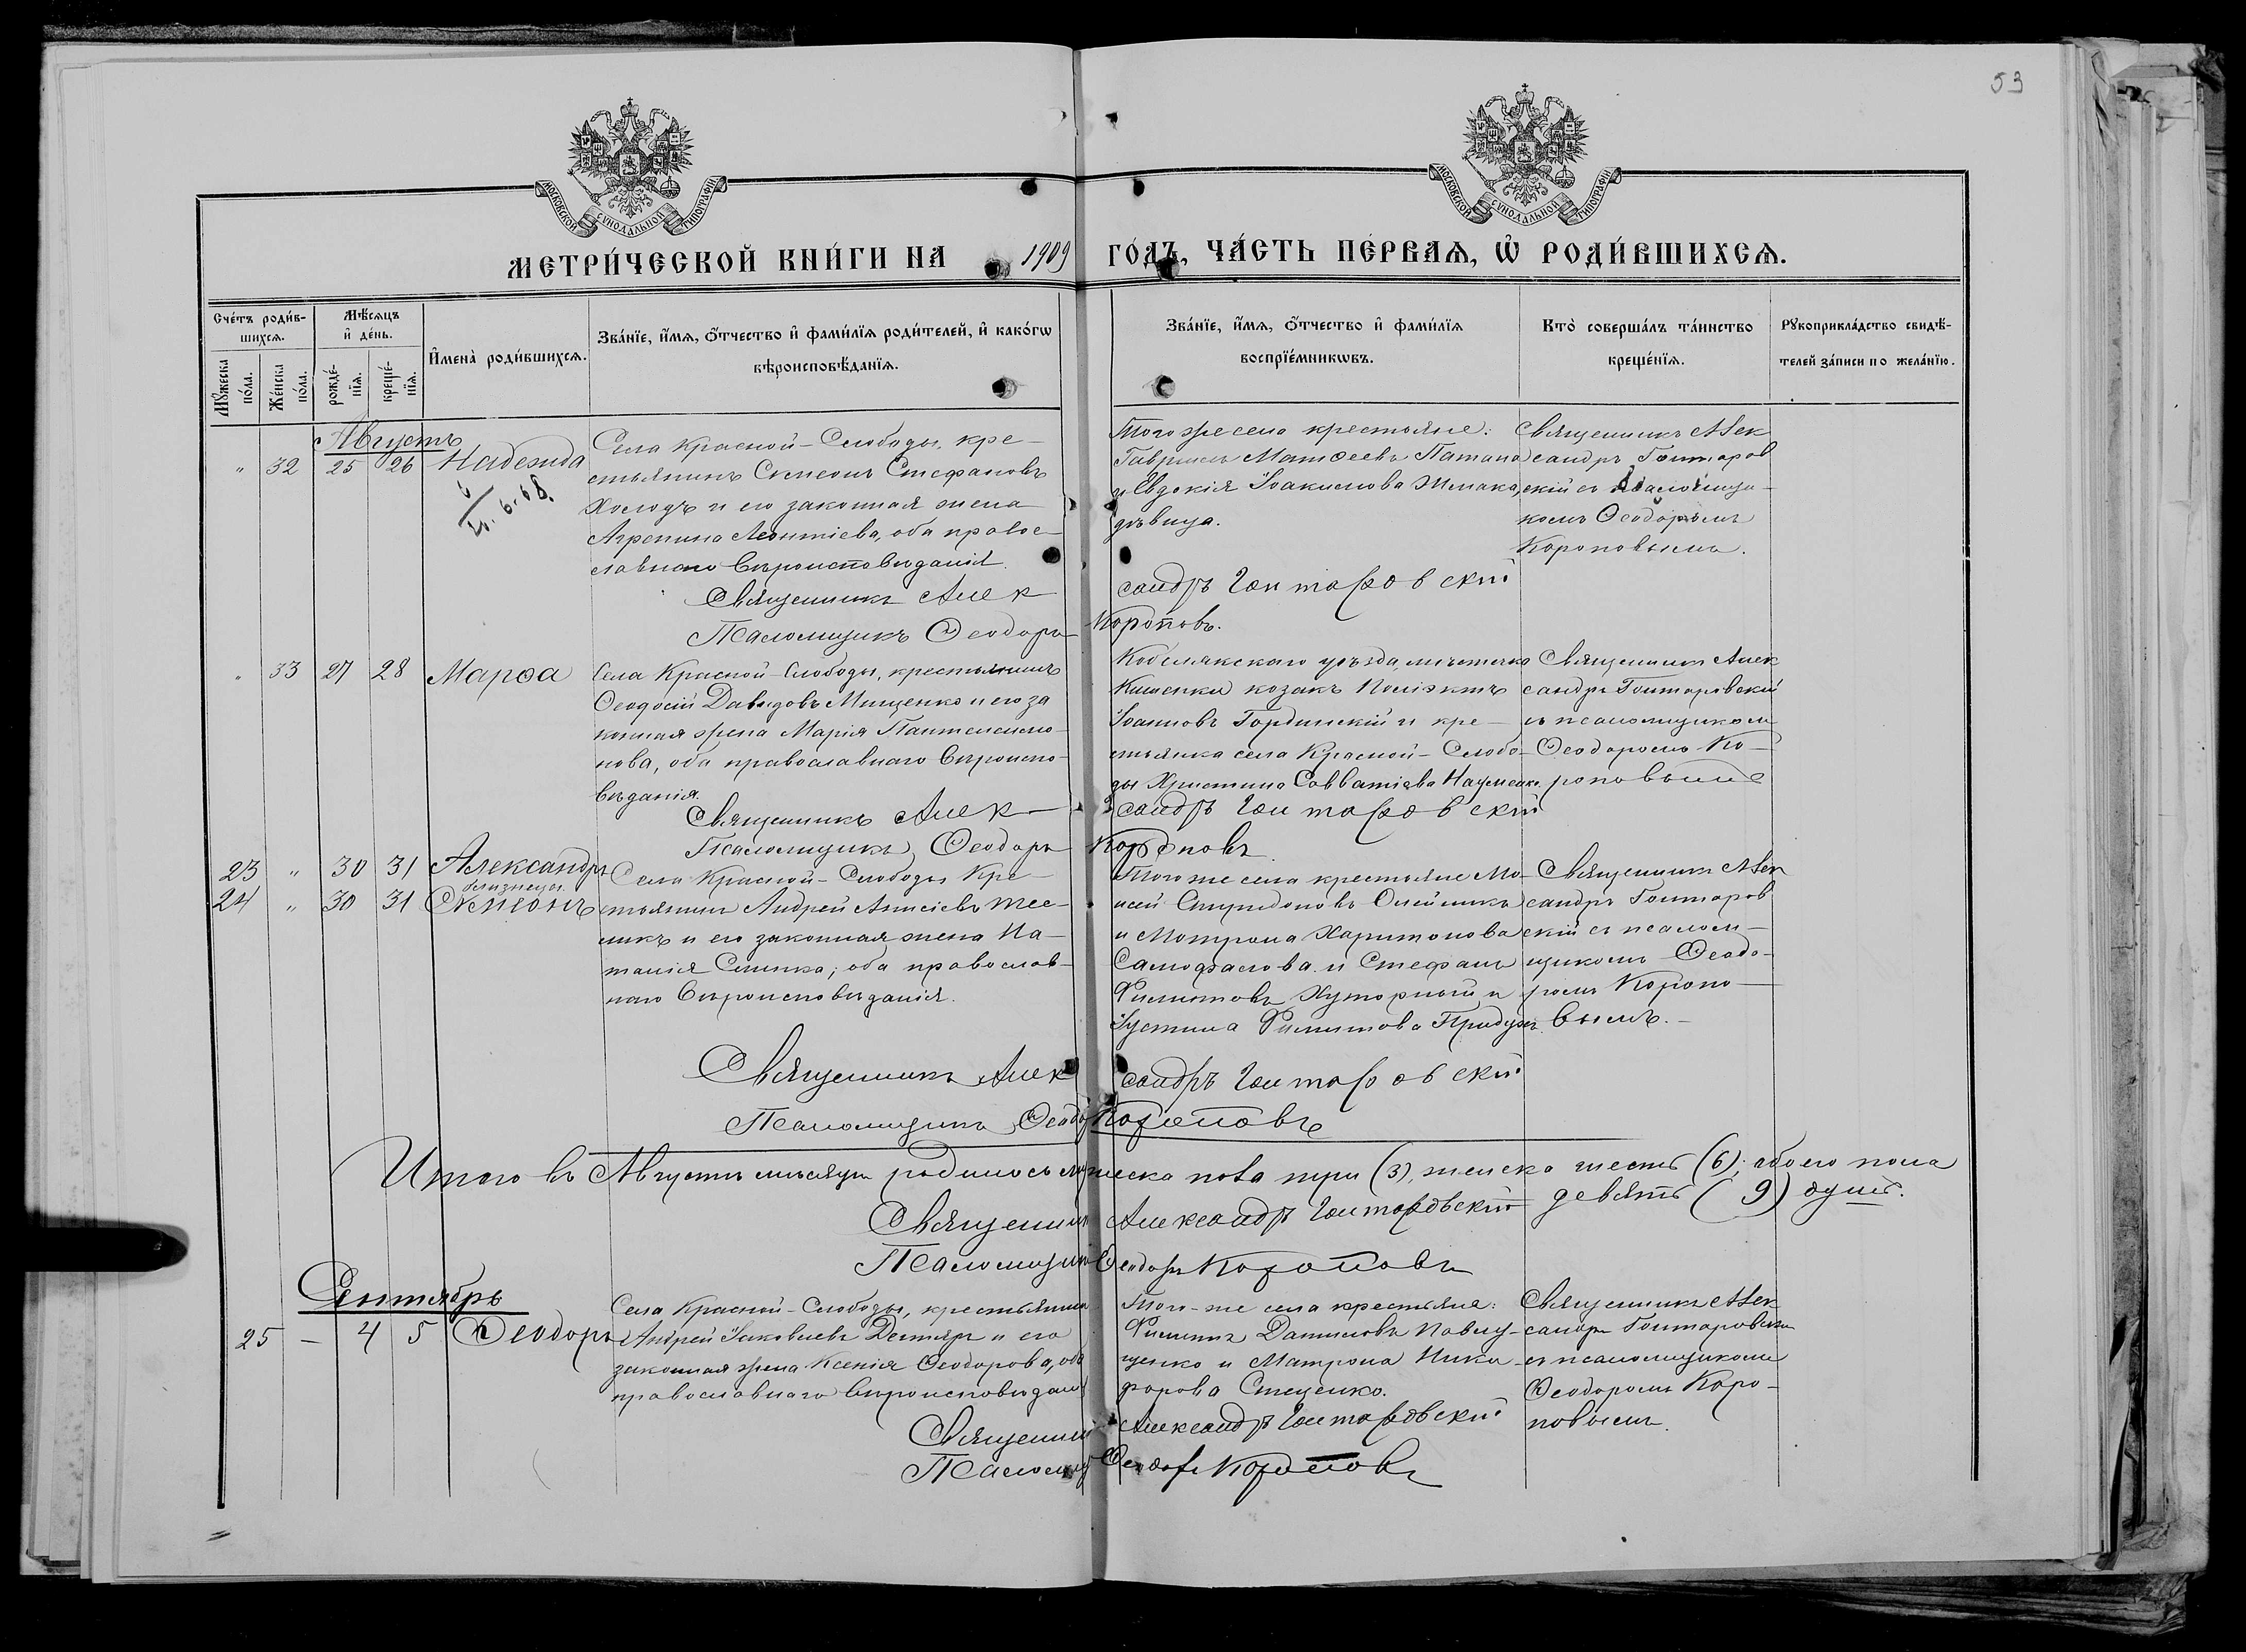 53
МОСКОВСКОЙ СѴНОДАЛЬНОЙ ТИПОГРАФІИ
МОСКОВСКОЙ СѴНОДАЛЬНОЙ ТИПОГРАФІИ
МЕТРИ́ЧЕСКОЙ КНИ́ГИ НА 1909 ГО́ДЪ, ЧА́СТЬ ПЕ́РВАѦ, Ѡ҆ РОДИ́ВШИХСѦ.
Сче́тъ роди́в-
шихсѧ.
Мꙋ́жеска
по́ла.
Же́нска
по́ла.
Мѣ́сѧцъ
и҆ де́нь.
рожде́-
нїѧ.
креще́-
нїѧ.
И҆мена̀ роди́вшихсѧ.
Зва́нїе, и҆́мѧ, ѻ҆́тчество и҆ фами́лїѧ роди́телей, и҆ како́гѡ
вѣроисповѣ́данїѧ.
Зва́нїе, и҆́мѧ, ѻ҆́тчество и҆ фами́лїѧ
воспрїе́мникѡвъ.
Кто̀ соверша́лъ та́инство
креще́нїѧ.
Рꙋкоприкла́дство свидѣ́-
телей за́писи по жела́нїю.
Августъ
" 32 25 26 Надежда
20.6.68.
Села Красной-Слободы, кре-
стьянинъ Сѵмеонъ Стефановъ
Холодъ и его законная жена
Агрепина Леонтіева, оба право-
славнаго вѣроисповѣданія.
Того же села крестьяне:
Гавріилъ Матѳеевъ
и Евдокія Іоакимова
дѣвица.
Священникъ Алек
сандръ Гонтаров
скій съ псаломщи-
комъ Ѳеодоромъ
Короповымъ.
Священникъ Александръ Гонтаровскій
Псаломщикъ Ѳеодоръ Короповъ.
" 33 27 28 Марѳа
Села Красной-Слободы, крестьянинъ
Ѳеодосій Давидовъ Мищенко и его за
конная жена Марія Пантелеимо-
нова, оба православнаго вѣроиспо-
вѣданія.
Кобелякскаго уѣзда, мѣстечка
Кишенки козакъ Поліэктъ
Іоанновъ Гординскій и кре-
стьянка села Красной-Слобо-
ды Христина Савватіева Науменко.
Священникъ Алек
сандръ Гонтаровскій
съ псаломщикомъ
Ѳеодоромъ Ко-
роповымъ
Священникъ Александръ Гонтаровскій
Псаломщикъ Ѳеодоръ Короповъ
23 " 30 31 Александръ
близнецы
24 " 30 31 Сѵмеонъ
Села Красной-Слободы кре-
стьянинъ Андрей Алексіевъ
и его законная жена На-
талія; оба православ-
наго вѣроисповѣданія.
Того же села крестьяне Мо-
исей Спиридоновъ Олейникъ
и Мотрона Харитонова
Самофалова и Стефанъ
Филипповъ Хуторный и
Іустина Филиппова
Священникъ Алек
сандръ Гонтаров
скій съ псалом-
щикомъ Ѳеодо-
ромъ Коропо-
вымъ.
Священникъ Александръ Гонтаровскій
Псаломщикъ Ѳеодоръ Короповъ
Итого въ Августѣ мѣсяцѣ родилось мужеска пола три (3), женска шесть (6); обоего пола
девять (9) душъ.
Священникъ Александръ Гонтаровскій
Псаломщикъ Ѳеодоръ Короповъ
Сентябрь
25 — 4 5 Ѳеодоръ
Села Красной-Слободы, крестьянинъ
Андрей Іаковлевъ Дегтярь и его
законная жена Ксенія Ѳеодорова, оба
православнаго вѣроисповѣданія
Того-же села крестьяне:
Филиппъ Даниловъ Павлу-
щенко и Матрона Ники-
форова Стеценко.
Священникъ Алек
сандръ Гонтаровскій
съ псаломщикомъ
Ѳеодоромъ Коро-
повымъ.
Священникъ Александръ Гонтаровскій
Псаломщикъ Ѳеодоръ Короповъ